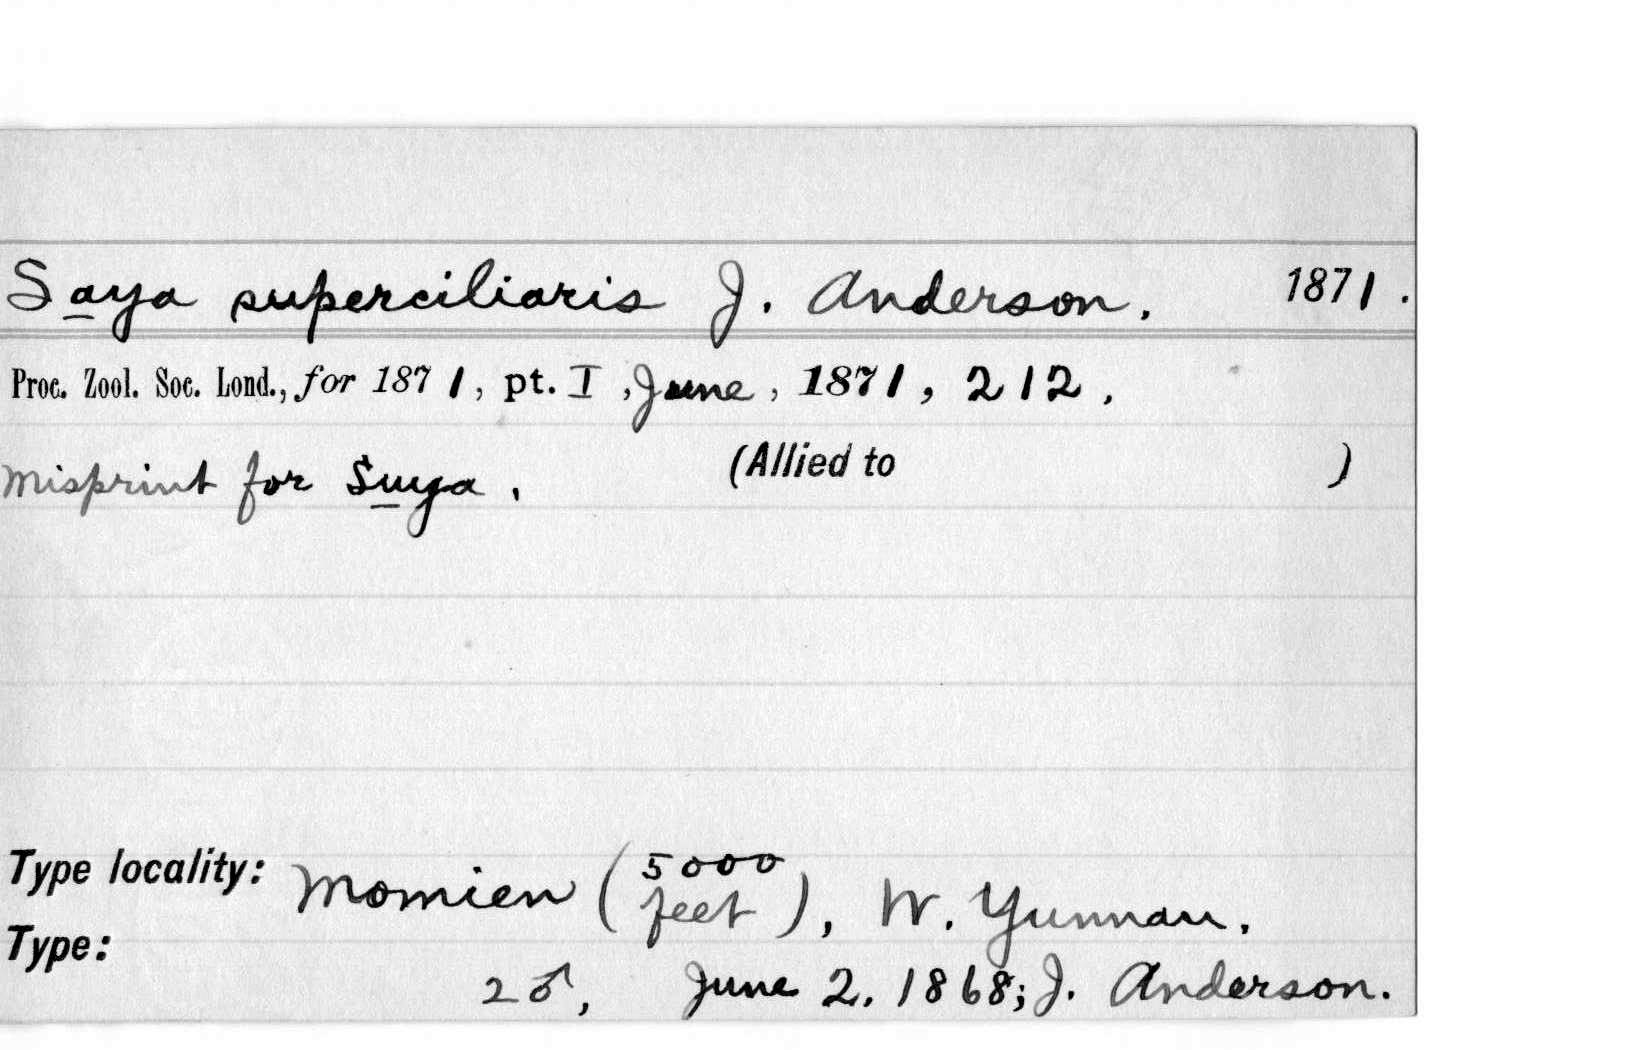 Saya superciliaris J. Anderson. 1871.
Proc. Zool. Soc. Lond., for 1871, pt. I, June, 1871, 212.
Misprint for Suya. (Allied to )
Type locality: Momien (5000 feet), W. Yunnan.
Type:
2♂, June 2, 1868; J. Anderson.